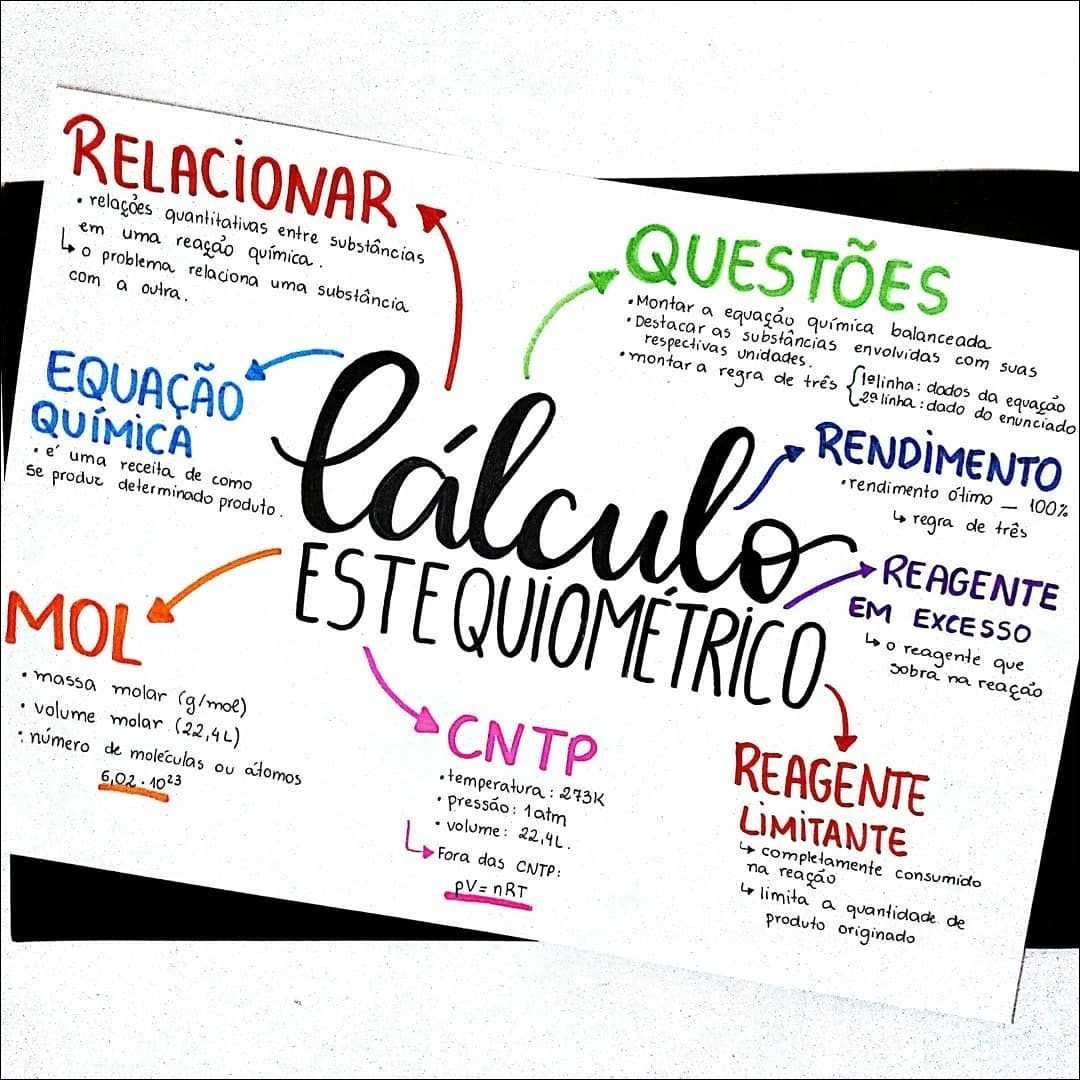 RELACIONAR
• relações quantitativas entre substâncias
em uma reação química.
↳ o problema relaciona uma substância
com a outra.
QUESTÕES
• Montar a equação química balanceada
• Destacar as substâncias envolvidas com suas
respectivas unidades.
• montar a regra de três { 1ª linha: dados da equação
2ª linha: dado do enunciado
EQUAÇÃO
QUÍMICA
• é uma receita de como
se produz determinado produto.
Cálculo
ESTEQUIOMÉTRICO
RENDIMENTO
• rendimento ótimo — 100%
↳ regra de três
REAGENTE
EM EXCESSO
↳ o reagente que
sobra na reação
MOL
• massa molar (g/mol)
• volume molar (22,4L)
• número de moléculas ou átomos
6,02 · 10²³
CNTP
• temperatura: 273K
• pressão: 1atm
• volume: 22,4L.
↳ Fora das CNTP:
pV = nRT
REAGENTE
LIMITANTE
↳ completamente consumido
na reação
↳ limita a quantidade de
produto originado